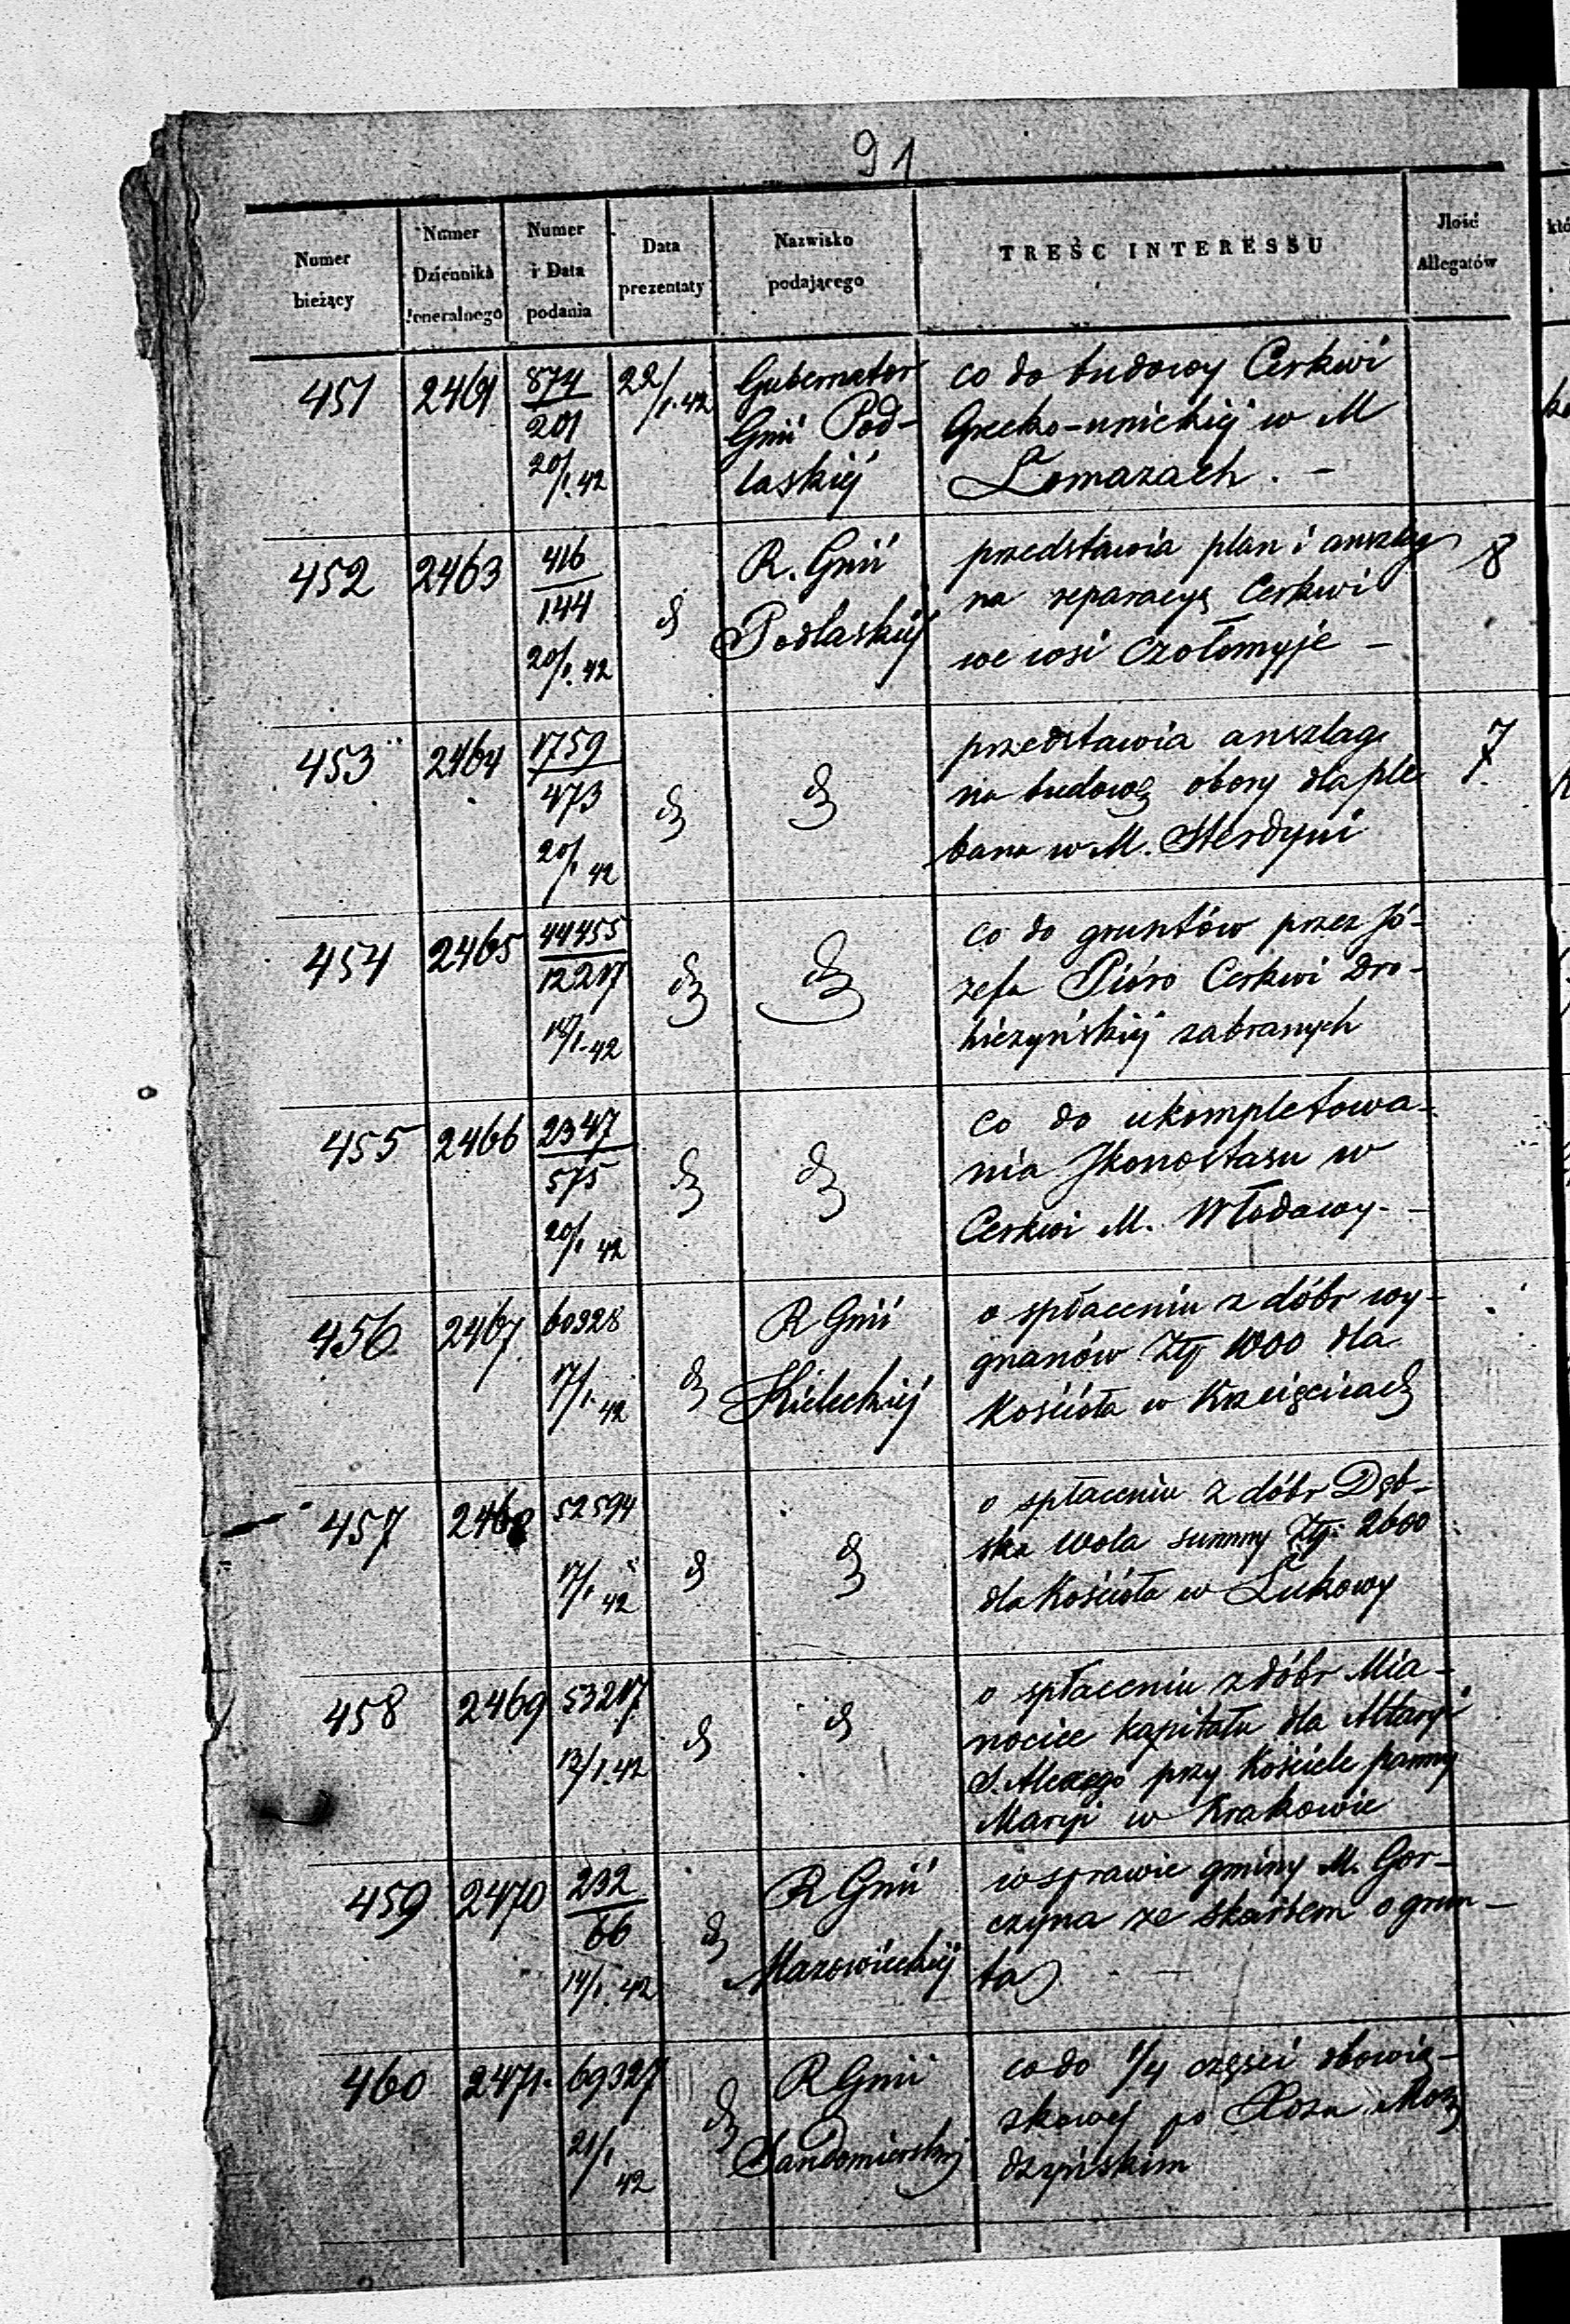 91
Numer bieżący
Numer Dziennika eneralnego
Numer i Data podania
Data prezentaty
Nazwisko podającego
TREŚC INTERESSU
Jlość Allegatów
451 2461 874/201 20/1.42 22/1.42
Gubernator
Gnii Pod-
laskiéj
co do budowy Cerkwi
Grecko-unickiéj w M
Łomazach. -
452 2463 416/144 20/1.42 d
R. Gnii
Podlaskiéj
przedstawia plan i anszlag
na reparacyą Cerkwi
we wsi Czołomyje -
8
453 2464 1759/473 20/1 42 do do
przedstawia anszlag
na budowę obory dla ple
bana w M. Sterdyni
7
454 2465 44455/12217 18/1-42 do do
co do gruntów przez Jó-
zefa Pióro Cerkwi Dro-
hiczyńskiéj zabranych
455 2466 2347/575 20/1 42 do do
co do ukompletowa-
nia Jkonostasu w
Cerkwi M. Włodawy. -
456 2467 60328 17/1.42 do
R Gnii
Kieleckiéj
o spłaceniu z dóbr wy-
gnanów Złp 1000 dla
Kościoła w Krzcięcicach
457 2468 52594 17/1 42 d do
o spłaceniu z dóbr Dęb-
ska Wola summy Złp: 2600
dla Kościoła w Łukowy
458 2469 53217 13/1.42 d d
o spłaceniu z dóbr Mia-
nocice kapitału dla Altaryi
S. Alexego przy Kościele panny
Maryi w Krakowie
459 2470 232/66 14/1.42 do
R Gnii
Mazowieckiéj
w sprawie gminy M. Gor-
czyna ze skarbem o grun-
ta
460 2471. 69327 21/1 42 do
R Gnii
Sandomierskiéj
co do 1/4 części obowią-
zkowey po
dzyńskim